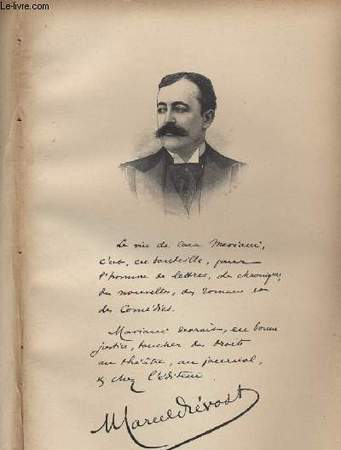 Le-livre.com
Le vin de Coca Mariani,
c'est, en bouteille, pour
l'homme de lettres, des chroniques,
des nouvelles, des romans et
des Comédies.
Mariani devrait, en bonne
justice, toucher des droits
au théâtre, au journal,
& chez l'éditeur.
Marcel Prévost